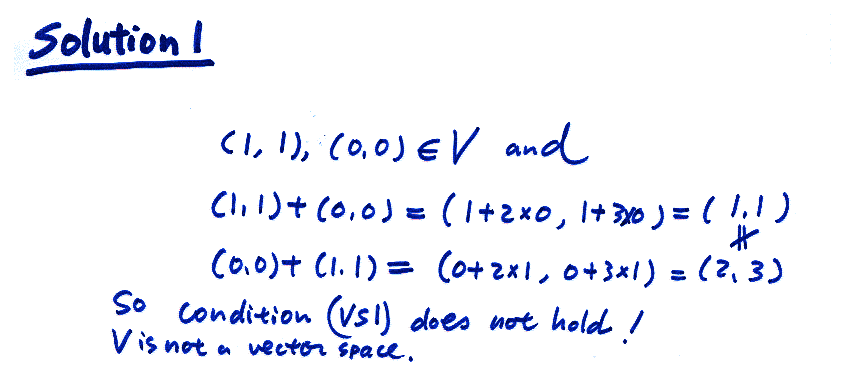 Solution 1
(1, 1), (0,0) ∈ V and
(1,1)+(0,0) = (1+2×0, 1+3×0) = (1,1)
∦
(0,0)+(1.1) = (0+2×1, 0+3×1) = (2,3)
So condition (VS1) does not hold!
V is not a vector space.